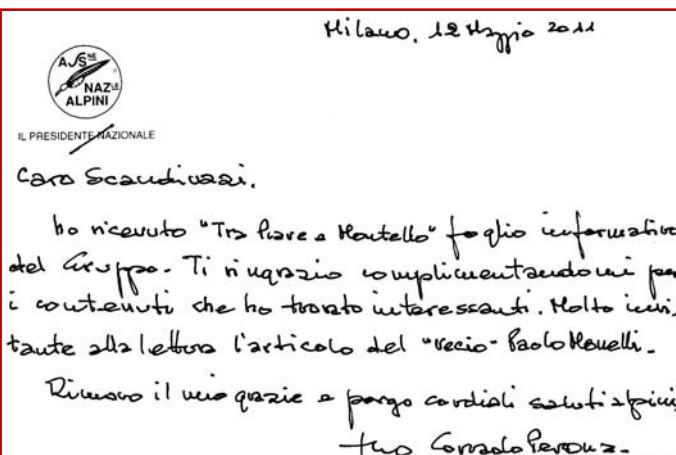 Milano, 12 Maggio 2011
ASS.NE
NAZ.LE
ALPINI
IL PRESIDENTE NAZIONALE
Caro Scandiuzzi.
ho ricevuto "Tra Piave e Montello" foglio informativo
del Gruppo. Ti ringrazio complimentandomi per
i contenuti che ho trovato interessanti. Molto invi-
tante alla lettura l'articolo del "vecio" Paolo Monelli.
Rinnovo il mio grazie e porgo cordiali saluti alpini,
tuo Corrado Perona.